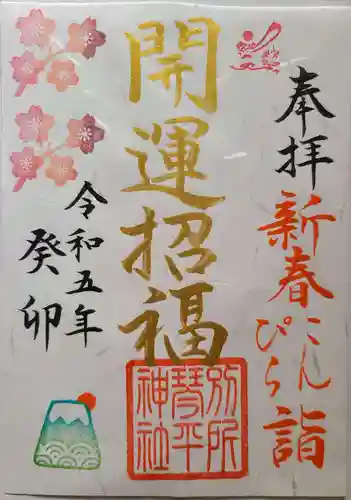 奉拝
新春こんぴら詣
開運招福
別所
琴平
神社
令和五年
癸卯